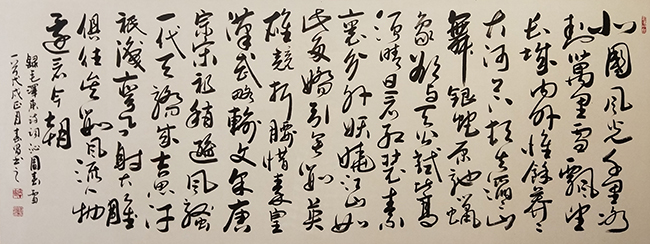 北國风光千里冰
封萬里雪飘望
长城内外惟馀莽々
大河上下顿失滔滔山
舞银蛇原驰蜡
象欲与天公试比高
须晴日看红装素
裹分外妖娆江山如
此多娇引无数英
雄竞折腰惜秦皇
汉武略输文采唐
宗宋祖稍逊风骚
一代天骄成吉思汗
祗识弯弓射大雕
俱往矣数风流人物
还看今朝
録毛泽东诗词沁园春雪
戊戌正月